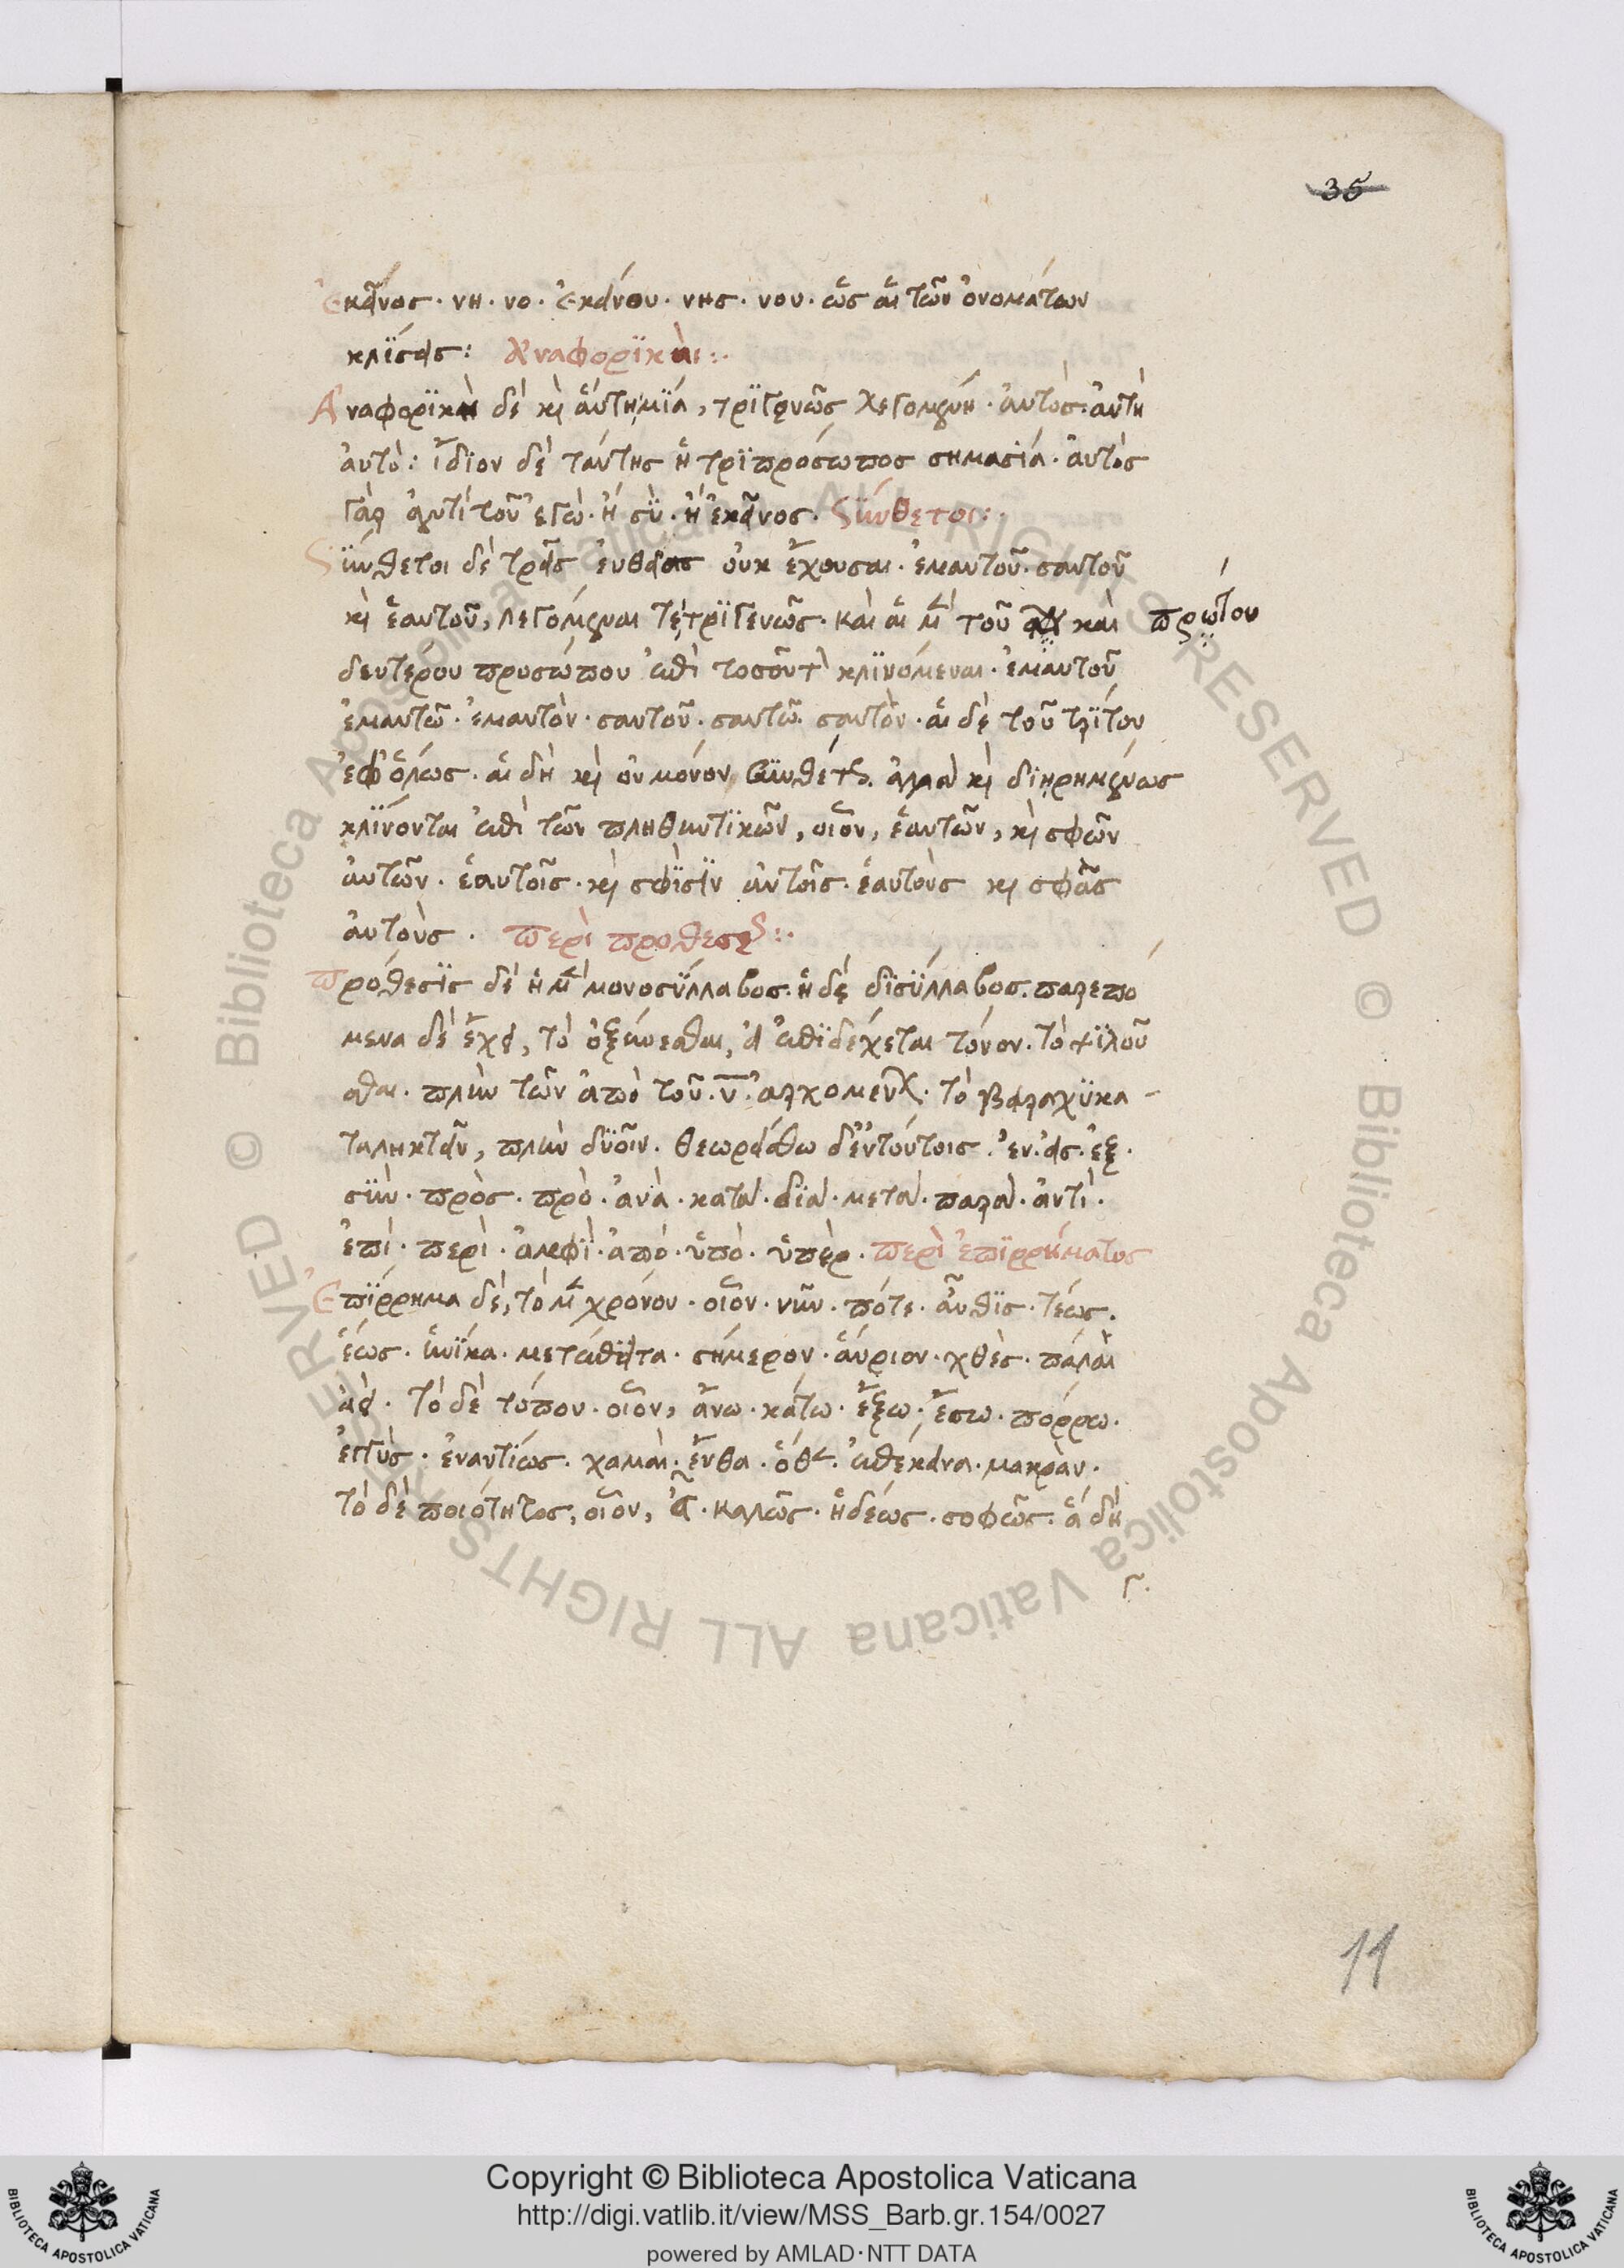 35
ἐκεῖνος · νη · νο · ἐκείνου · νης · νου · ὡς αἱ τῶν ὀνομάτων
κλΐσεις : Ἀναφορϊκαὶ :·
Ἀναφορϊκὴ δὲ κὶ ἁύτη μϊά, τρϊγενῶς λεγομένη · ἀυτὸς · ἀυτὴ
ἀυτὸ : ἴδϊον δὲ ταύτης ἡ τρϊπρόσωπος σημασία · ἀυτὸς
γὰρ ἀντὶ τοῦ ἐγὼ · ἢ σὺ · ἢ ἐκεῖνος · Σϋνθετοι :·
Σϋνθετοι δὲ τρεῖς ἐυθείας οὐκ ἔχουσαι · ἐμαυτοῦ · σαυτοῦ
κὶ ἑαυτοῦ, λεγόμεναι τὲ τρϊγενῶς · καὶ αἱ μὲν τοῦ καὶ πρώτου
δευτέρου προσώπου ἐπὶ τοσοῦτον κλϊνόμεναι · ἐμαυτοῦ
ἐμαυτῶ · ἐμαυτὸν · σαυτοῦ · σαυτῶ · σαυτὸν · αἱ δὲ τοῦ τρΐτου
ἐφ ὅλως · αἱ δὴ κὶ οὐ μόνον σϋνθέτως ἀλλὰ κὶ δϊῃρημένως
κλΐνονται ἐπὶ τῶν πληθυντϊκῶν, οἷον, ἑαυτῶν, κὶ σφῶν
ἀυτῶν · ἑαυτοῖς · κὶ σφΐσϊν ἀυτοῖς · ἑαυτοὺς κὶ σφᾶς
ἀυτοὺς · περὶ προθέσεως :·
Πρόθεσϊς δὲ ἡ μὲν μονοσΰλλαβος · ἡ δὲ δϊσΰλλαβος · παρεπό
μενα δὲ ἔχει, τὸ ὀξύνεσθαι, εἰ ἐπϊδέχεται τόνον · τὸ ψϊλοῦ
σθαι · πλὴν τῶν ἀπὸ τοῦ · υ · ἀρχομένων · τὸ βραχϋκα-
ταληκτεῖν, πλὴν δϋοῖν · θεωρείσθω δ' ἐν τούτοις · ἐν · εἰς · ἐξ ·
σϋν · πρὸς · πρὸ · ἀνὰ · κατὰ · δϊὰ · μετὰ · παρὰ · ἀντὶ ·
ἐπὶ · περὶ · ἀμφϊ · ἀπὸ · ὑπὸ · ὑπὲρ · περὶ ἐπϊρρήματος
Ἐπΐρρημα δὲ, τὸ μὲν χρόνου · οἷον · νῦν · πότε · ἆυθϊς · τέως ·
ἕως · ἡνΐκα · μετέπϊτα · σήμερον · ἄυριον · χθὲς · πάλαι
ἀεὶ · τὸ δὲ τόπου · οἷον, ἄνω · κάτω · ἔξω · ἔσω · πόρρω ·
ἐγγὺς · ἐναντίως · χαμαὶ · ἔνθα · ὅθεν · ἐπέκεινα · μακρὰν ·
τὸ δὲ ποιότητος, οἷον, εὖ · καλῶς · ἡδέως · σοφῶς · ἃ δὴ
γ ·
11
Copyright © Biblioteca Apostolica Vaticana
http://digi.vatlib.it/view/MSS_Barb.gr.154/0027
powered by AMLAD·NTT DATA
BIBLIOTECA APOSTOLICA VATICANA
BIBLIOTECA APOSTOLICA VATICANA
© Biblioteca Apostolica Vaticana ALL RIGHTS RESERVED © Biblioteca Apostolica Vaticana ALL RIGHTS RESERVED